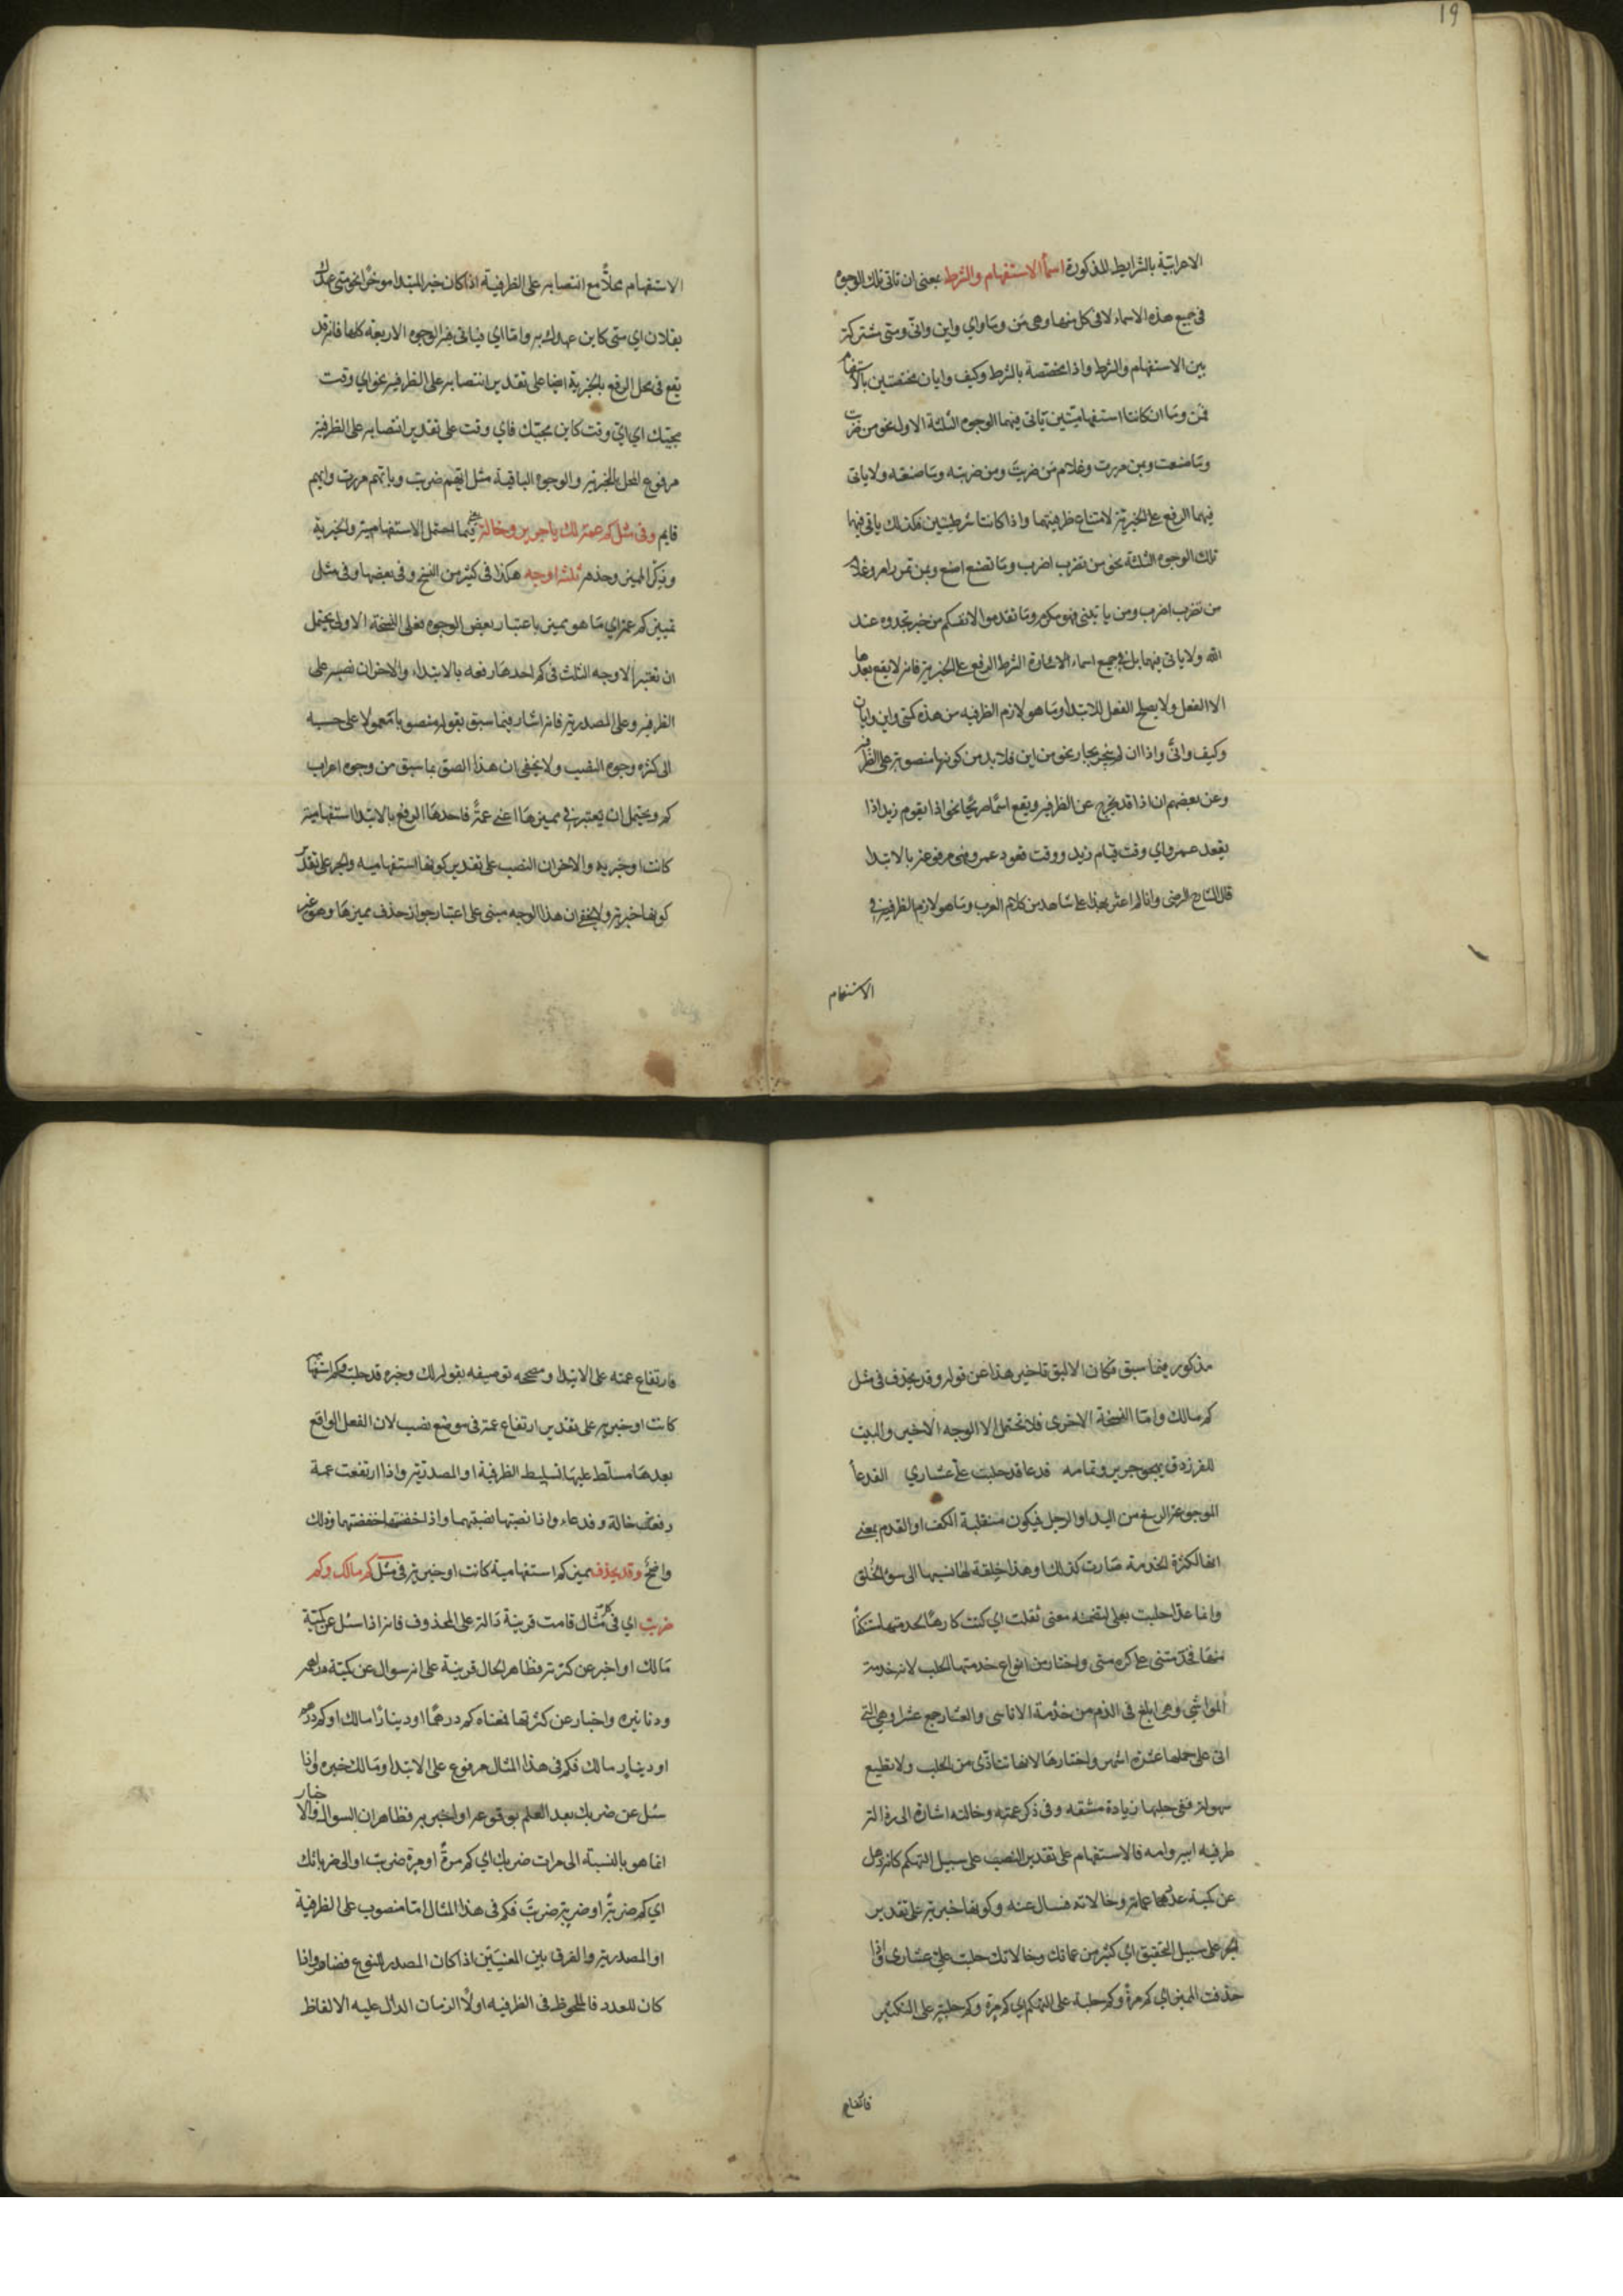 19
الاعرابية بالشرايط المذكورة اسماء الاستفهام والشرط بمعنى ان تاتى تلك الوجوه
فى جميع هذه الاسماء لا فى كل منها وهى من وما واي واين وانى ومتى مشتركة
بين الاستفهام والشرط واذا مختصة بالشرط وكيف وايان مختصتين بالاستفهام
فمن وما ان كانتا استفهاميتين ياتى فيهما الوجوه الثلثة الاول نحو من ضربت
وما صنعت وبمن مررت وغلام من ضربت ومن ضربته وما صنعته ولا ياتى
فيهما الرفع على الخبرية لامتناع ظرفيتهما واذا كانتا شرطيتين فكذلك ياتى فيها
تلك الوجوه الثلثة نحو من تضرب اضرب وما تصنع اصنع وبمن تمرر امرر وغلام
من تضرب اضرب ومن ياتينى فهو مكرم وما تقدموا لانفسكم من خير تجدوه عند
الله ولا ياتى فيهما بل فى جميع اسماء الشرط الرفع على الخبرية فانه لا يقع بعدها
الا الفعل ولا يصلح الفعل للابتداء وما هو لازم الظرفيه من هذه كمتى واين وايان
وكيف وانى واذا ان لم ينجر بجار نحو من اين فلا بد من كونها منصوبة على الظرفية
وعن بعضهم ان اذا قد يخرج عن الظرفية ويقع اسما صريحا نحو اذا يقوم زيد اذا
يقعد عمرو اي وقت قيام زيد ووقت قعود عمرو فهى مرفوعة بالابتدا
قال الشارح الرضى وانا لم اعثر لهذا على شاهد من كلام العرب وما هو لازم الظرفية فى
الاستفهام
الاستفهام محلا مع انتصابه على الظرفية اذا كان خبر المبتدا موخرا نحو متى عهدك
بفلان اي متى كاين عهدك به واما اي فياتى فيه الوجوه الاربعة كلها فانه قد
يقع فى محل الرفع بالخبرية ايضا على تقدير انتصابه على الظرفية نحو اي وقت
مجيئك اي اي وقت كاين مجيئك فاي وقت على تقدير انتصابه على الظرفية
مرفوع المحل بالخبرية والوجوه الباقية مثل ايهم ضربت وبايهم مررت وايهم
قايم وفى مثل كم عمة لك يا جرير وخالة يعنى فيما احتمل الاستفهامية والخبرية
وذكر المميز وحذفه ثلثة اوجه هكذا فى كثير من النسخ وفى بعضها وفى مثل
تمييز كم عمة اي ما هو مميز باعتبار بعض الوجوه فعلى النسخة الاولى يحتمل
ان تعتبر الاوجه الثلث فى كم احدها رفعه بالابتداء والاخران نصبه على
الظرفية وعلى المصدرية فانه اشار فيما سبق بقوله منصوبا معمولا على حسبه
الى كثرة وجوه النصب ولا يخفى ان هذا الصق بما سبق من وجوه اعراب
كم ويحتمل ان يعتبر فى مميزها اعنى عمة فاحدها الرفع بالابتدا استفهامية
كانت او خبرية والاخران النصب على تقدير كونها استفهاميه والجر على تقدير
كونها خبرية ولا يخفى ان هذا الوجه مبنى على اعتبار جواز حذف مميزها وهو غير
مذكور فيما سبق فكان الاليق تاخير هذا عن قوله وقد يحذف فى مثل
كم مالك واما النسخة الاخرى فلا تحتمل الا الوجه الاخير والبيت
للفرزدق يهجو جريرا وتمامه فدعا قد حلبت على عشاري الفدعا
المعوجة الرسغ من اليد او الرجل فيكون منقلبة الكف او القدم بمعنى
انها لكثرة الخدمة صارت كذلك او هذا خلقة لها نسبها الى سوء الخلق
وانما عدا حلبت بعلى لتضمنه معنى ثقلت اي كنت كارها لخدمتها مستنكفا
منها فخدمتنى على كره منى واختار من انواع خدمتها الحلب لانه خدمة
المواشي وهى ابلغ فى الذم من خدمة الاناسى والعشار جمع عشراء وهى التى
اتى على حملها عشرة اشهر واختارها لانها تتاذى من الحلب ولا تطيع
بسهولة ففى حلبها زيادة مشقة وفى ذكر عمته وخالته اشارة الى رذالة
طرفيه ابيه وامه فالاستفهام على تقدير النصب على سبيل التهكم كانه ذهل
عن كمية عدد عماته وخالاته فسال عنه وكونها خبرية على تقدير
الجر على سبيل التحقيق اي كثير من عماتك وخالاتك حلبت على عشارى واذا
حذفت المميز اي كم مرة وكم حلبة على التهكم اي كم مرة وكم حلبة على التكثير
فارتفاع
فارتفاع عمة على الابتدا ومصححه توصيفه بقوله لك وخبره قد حلبت وكم استفهامية
كانت او خبرية على تقدير ارتفاع عمة فى موضع نصب لان الفعل الواقع
بعدها مسلط عليها تسليط الظرفية او المصدرية واذا ارتفعت عمة
رفعت خالة وفدعاء واذا نصبتها نصبتهما واذا خفضتها خفضتهما وذلك
واضح وقد يحذف مميز كم استفهامية كانت او خبرية فى مثل كم مالك وكم
ضربت اي فى كل مثال قامت قرينة دالة على المحذوف فانه اذا سئل عن كمية
مالك او اخبر عن كثرته فظاهر الحال قرينة على انه سوال عن كمية دراهمه
ودنانيره واخبار عن كثرتها فمعناه كم درهما او دينارا مالك او كم درهم
او دينار مالك فكم فى هذا المثال مرفوع على الابتدا ومالك خبره واذا
سئل عن ضربك بعد العلم بوقوعه او اخبر به فظاهر ان السوال والاخبار
انما هو بالنسبة الى مرات ضربك اي كم مرة او مرة ضربت او الى ضرباتك
اي كم ضربة او ضربة ضربت فكم فى هذا المثال اما منصوب على الظرفية
او المصدرية والفرق بين المعنيين اذا كان المصدر للنوع فظاهر واذا
كان للعدد فالملحوظ فى الظرفيه اولا الزمان الدال عليه الالفاظ